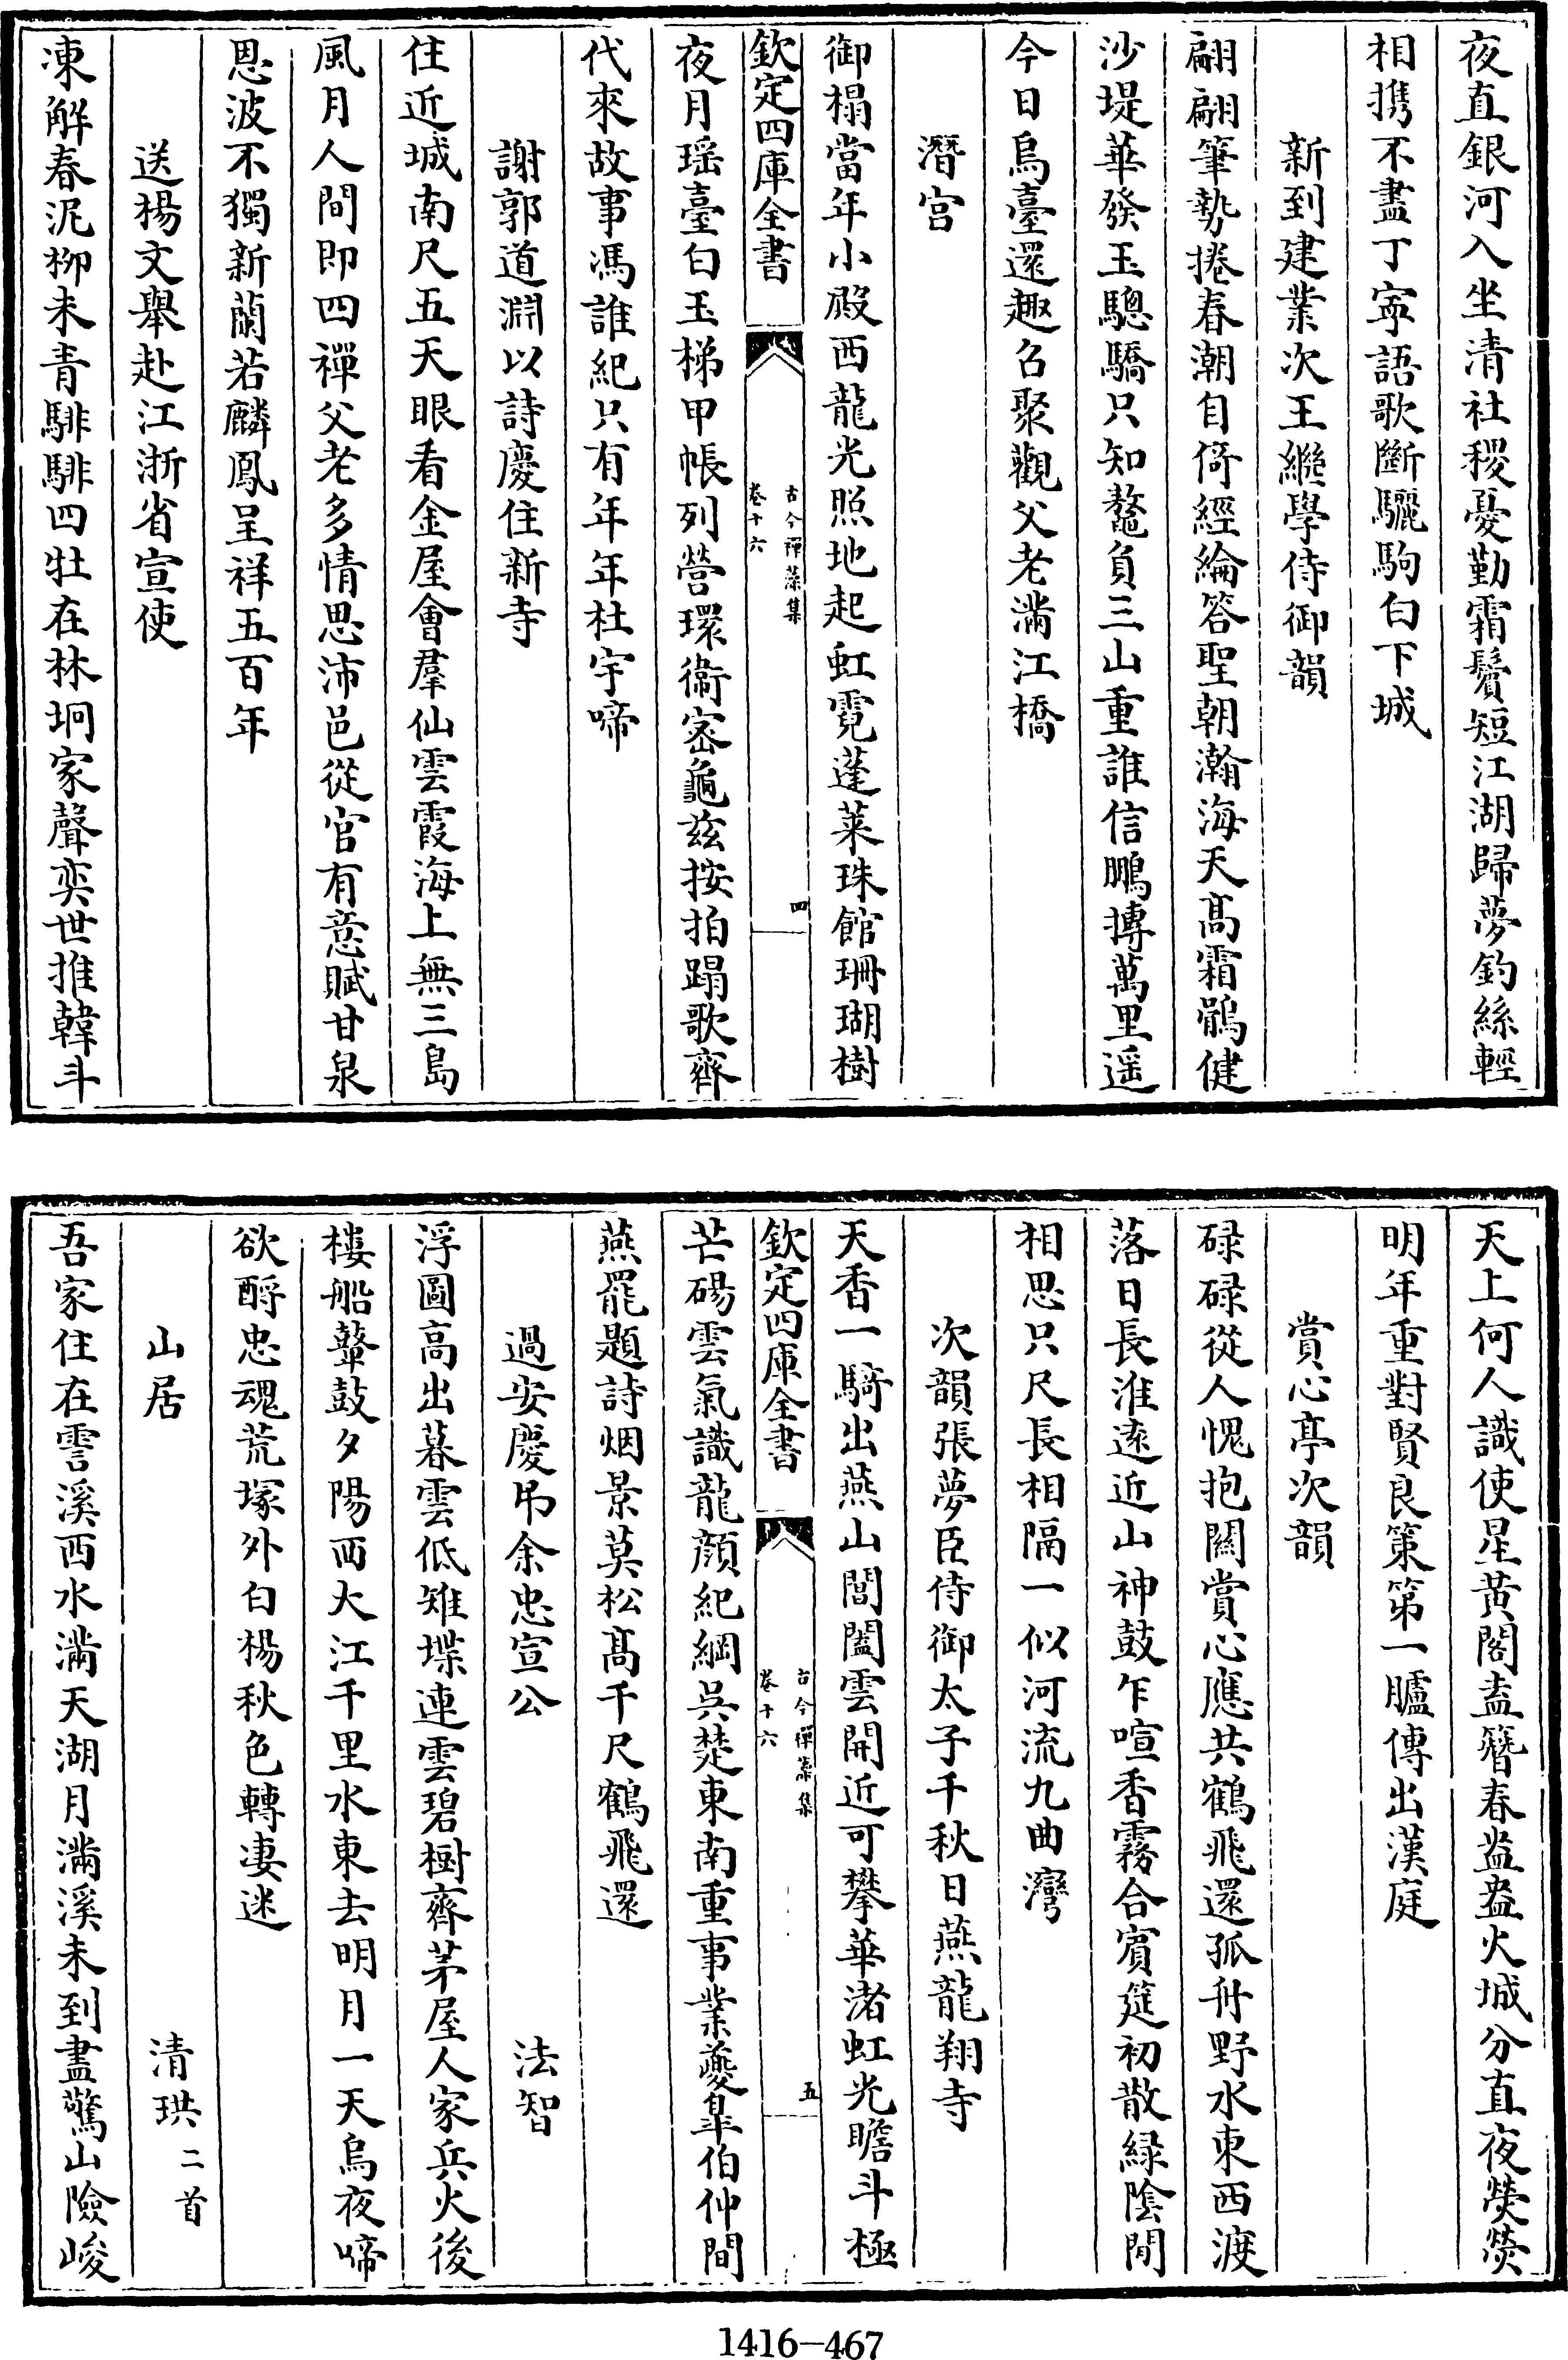 夜直銀河入坐清社稷憂勤霜鬢短江湖歸夢釣絲輕
相携不盡丁寧語歌斷驪駒白下城
新到建業次王繼學侍御韻
翩翩筆勢捲春潮自倚經綸答聖朝瀚海天高霜鶻健
沙堤華發玉驄驕只知鼇負三山重誰信鵬摶萬里遥
今日烏臺還趣召聚觀父老滿江橋
潛宫
御榻當年小殿西龍光照地起虹霓蓬莱珠館珊瑚樹
欽定四庫全書
古今禪藻集
卷十六
四
夜月瑶臺白玉梯甲帳列營環衞宻龜兹按拍蹋歌齊
代來故事馮誰紀只有年年杜宇啼
謝郭道淵以詩慶住新寺
住近城南尺五天眼看金屋會羣仙雲霞海上無三島
風月人間即四禪父老多情思沛邑從官有意賦甘泉
恩波不獨新蘭若麟鳳呈祥五百年
送楊文舉赴江浙省宣使
凍解春泥柳未青騑騑四牡在林坰家聲奕世推韓斗
天上何人識使星黄閣盍簪春盎盎火城分直夜熒熒
明年重對賢良策第一臚傳出漢庭
賞心亭次韻
碌碌從人愧抱關賞心應共鶴飛還孤舟野水東西渡
落日長淮遠近山神鼓乍喧香霧合賓筵初散緑陰閒
相思只尺長相隔一似河流九曲灣
次韻張夢臣侍御太子千秋日燕龍翔寺
天香一騎出燕山閶闔雲開近可攀華渚虹光瞻斗極
欽定四庫全書
古今禪藻集
卷十六
五
芒碭雲氣識龍顔紀綱吳楚東南重事業夔臯伯仲間
燕罷題詩烟景莫松髙千尺鶴飛還
過安慶弔余忠宣公
法智
浮圖高出暮雲低雉堞連雲碧樹齊茅屋人家兵火後
樓船鼙鼓夕陽西大江千里水東去明月一天烏夜啼
欲酹忠魂荒塚外白楊秋色轉凄迷
山居
清珙二首
吾家住在霅溪西水滿天湖月滿溪未到盡驚山險峻
1416-467